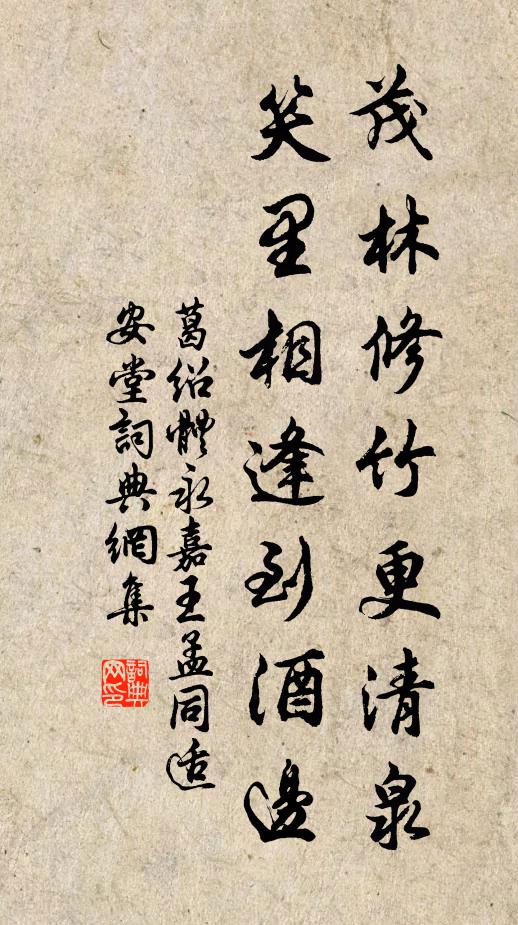 茂林修竹更清泉
笑里相逢到酒邊
葛紹體永嘉王孟同适
安堂詞典網集
詞典網印